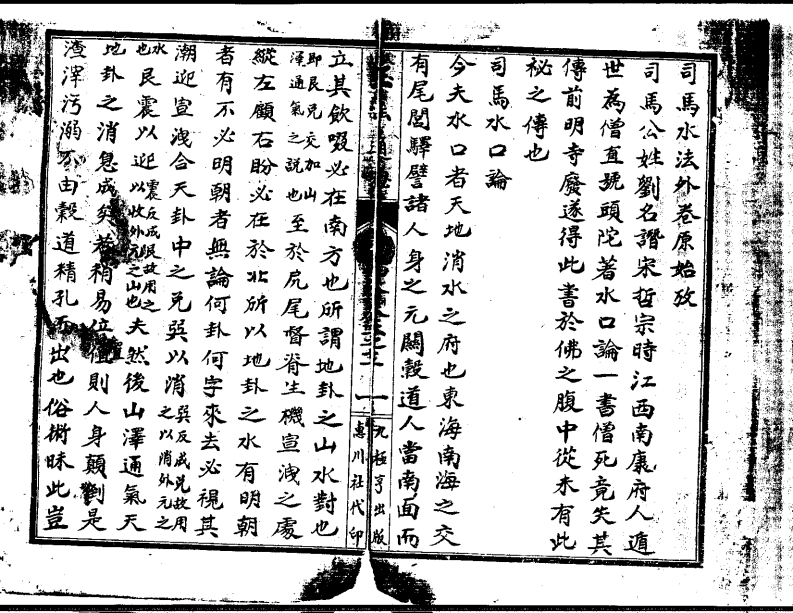 司馬水法外卷原始攷
司馬公姓劉名譖宋哲宗時江西南康府人遁
世為僧直號頭陀著水口論一書僧死竟失其
傳前明寺廢遂得此書於佛之腹中從未有此
秘之傳也
司馬水口論
今夫水口者天地消水之府也東海南海之交
有尾閭驛譬諸人身之元關穀道人當南面而
九極亨出版
惠川社代印
立其飲啜必在南方也所謂地卦之山水對也
即艮兌交加山
澤通氣之說也
至於尻尾督脊生磯宣洩之處
縱左顧右盼必在於北所以地卦之水有明朝
者有不必明朝者無論何卦何字來去必視其
潮迎宣洩合天卦中之兌巽以消
巽反成兌故用
之以消外元之
水
也
艮震以迎
震反成艮故用之
以收外元之山也
夫然後山澤通氣天
地卦之消息成矣若稍易位置則人身顛倒是
渣滓污溺不由穀道精孔而出也俗術昧此豈